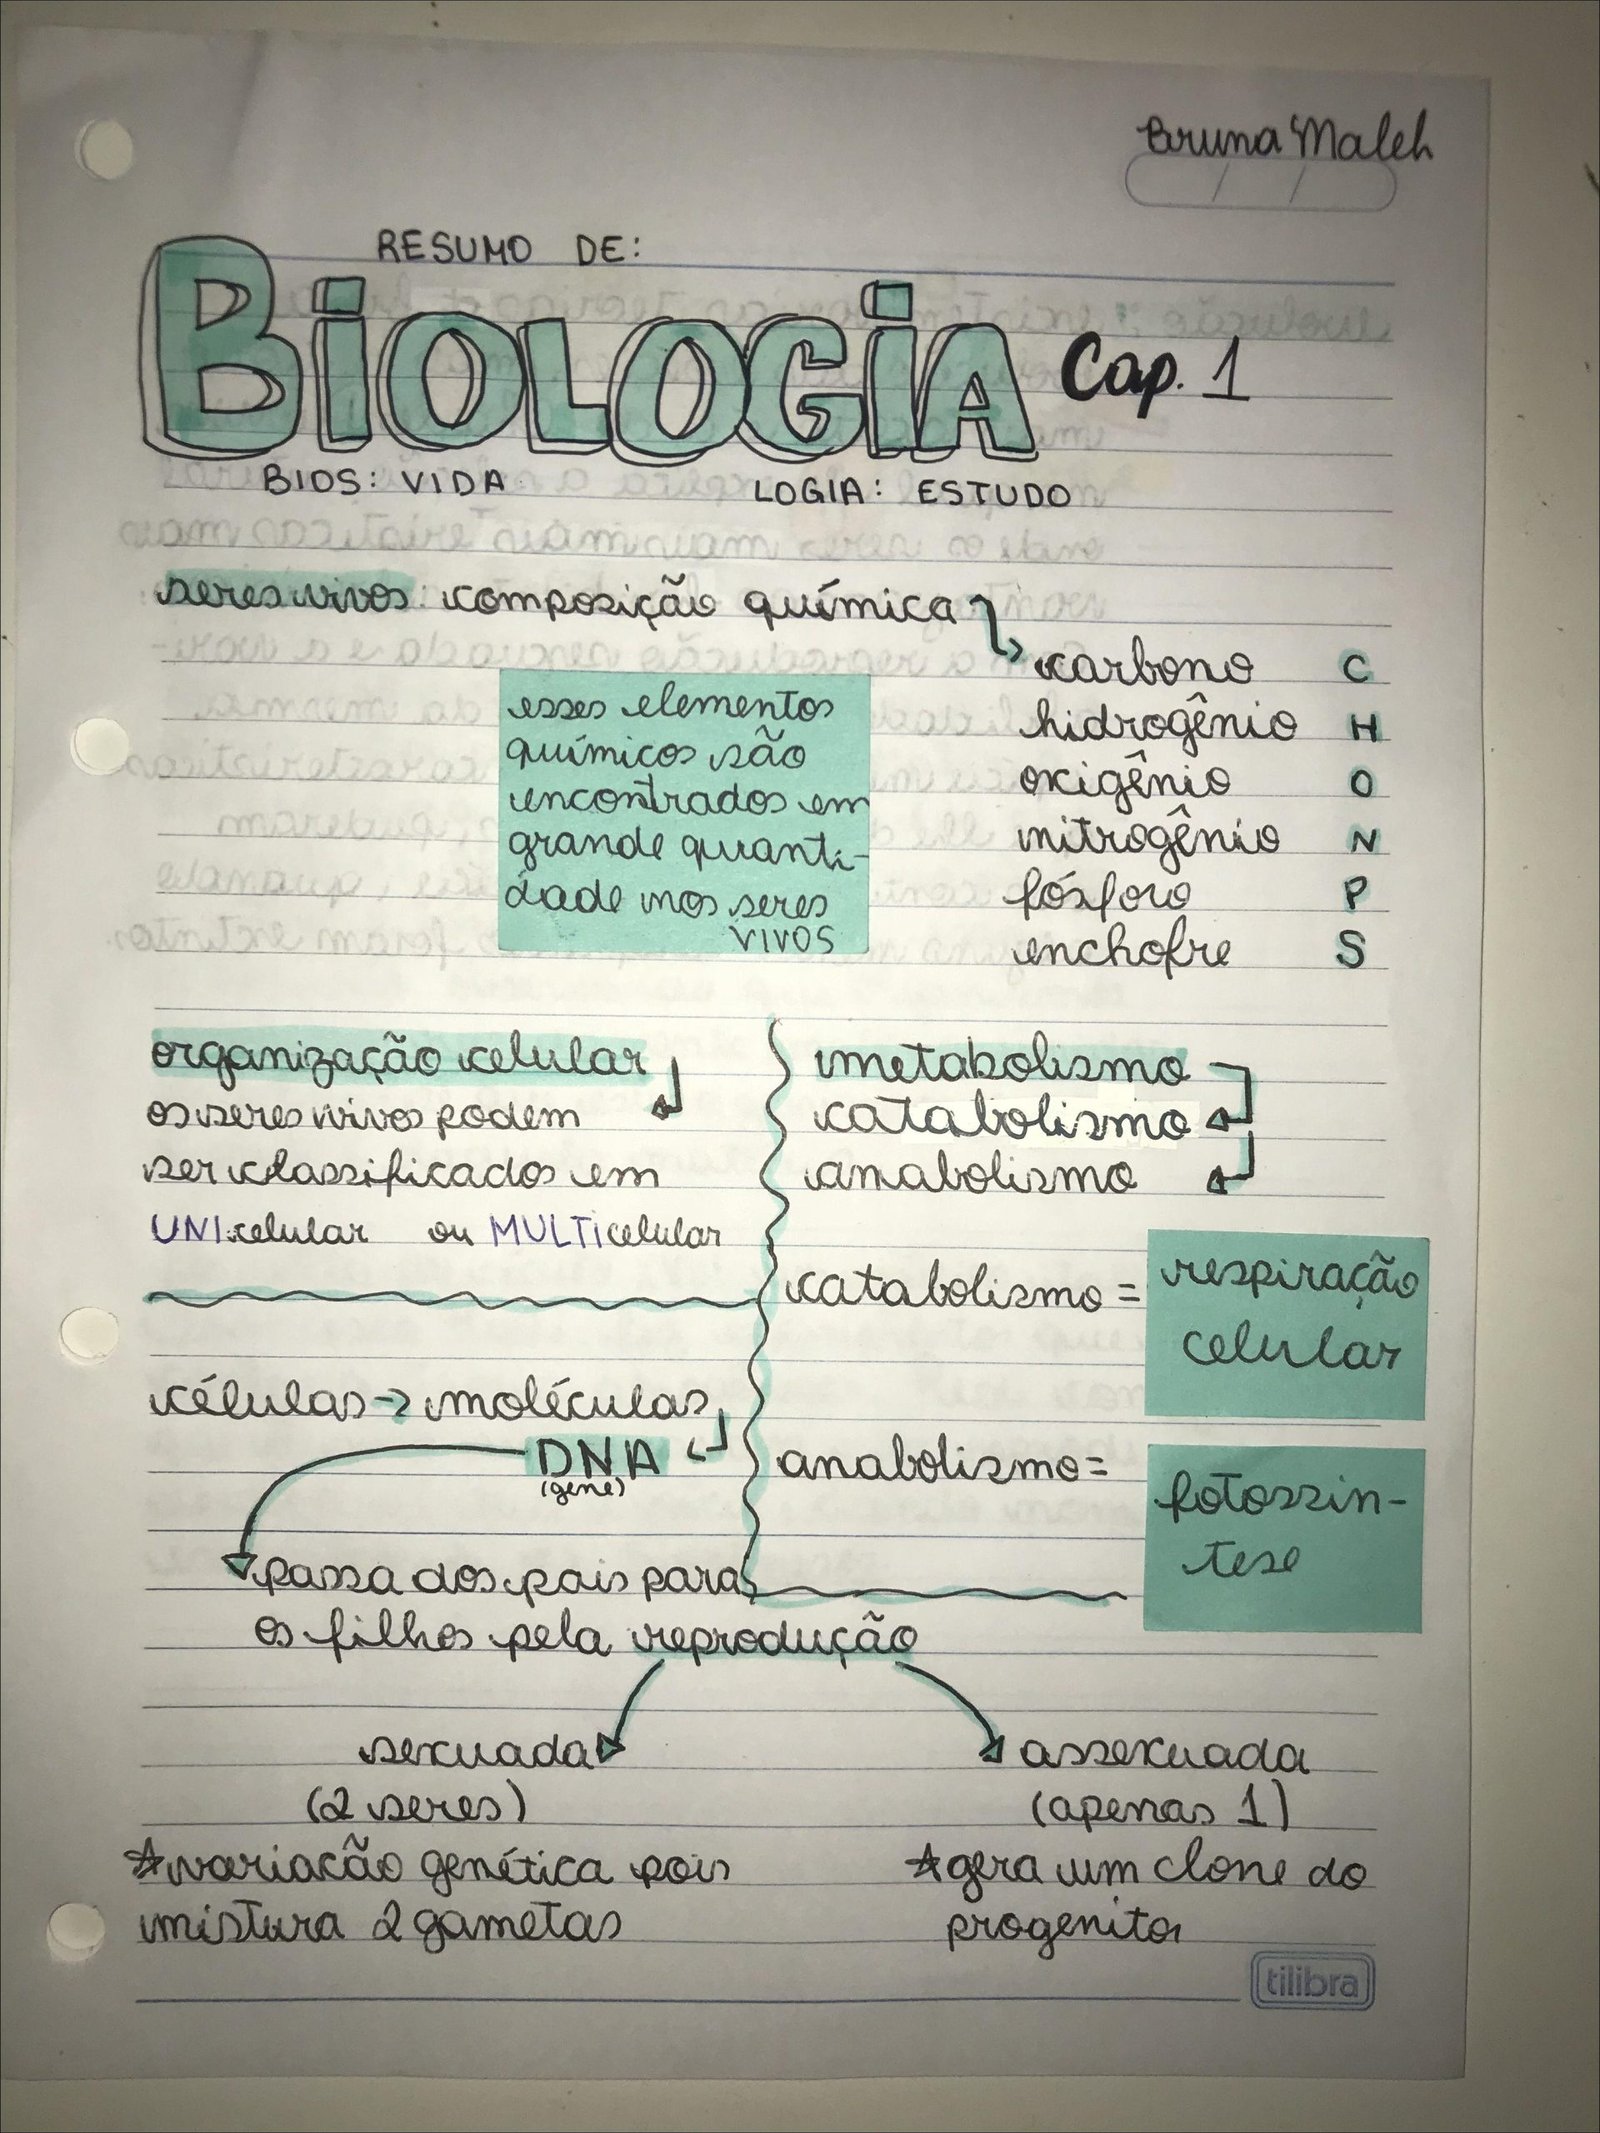 Bruna Maleh
RESUMO DE:
BiOLOGiA Cap. 1
BIOS: VIDA LOGIA: ESTUDO
seres vivos: composição química
carbono C
hidrogênio H
oxigênio O
nitrogênio N
fósforo P
enchofre S
esses elementos
químicos são
encontrados em
grande quanti-
dade nos seres
VIVOS
organização celular
os seres vivos podem
ser classificados em
UNIcelular ou MULTicelular
metabolismo
catabolismo
anabolismo
catabolismo =
respiração
celular
anabolismo=
fotossín-
tese
células → moléculas
DNA
(gene)
passa dos pais para
os filhos pela reprodução
sexuada
(2 seres)
*variacão genética pois
mistura 2 gametas
assexuada
(apenas 1)
*gera um clone do
progenitor
tilibra